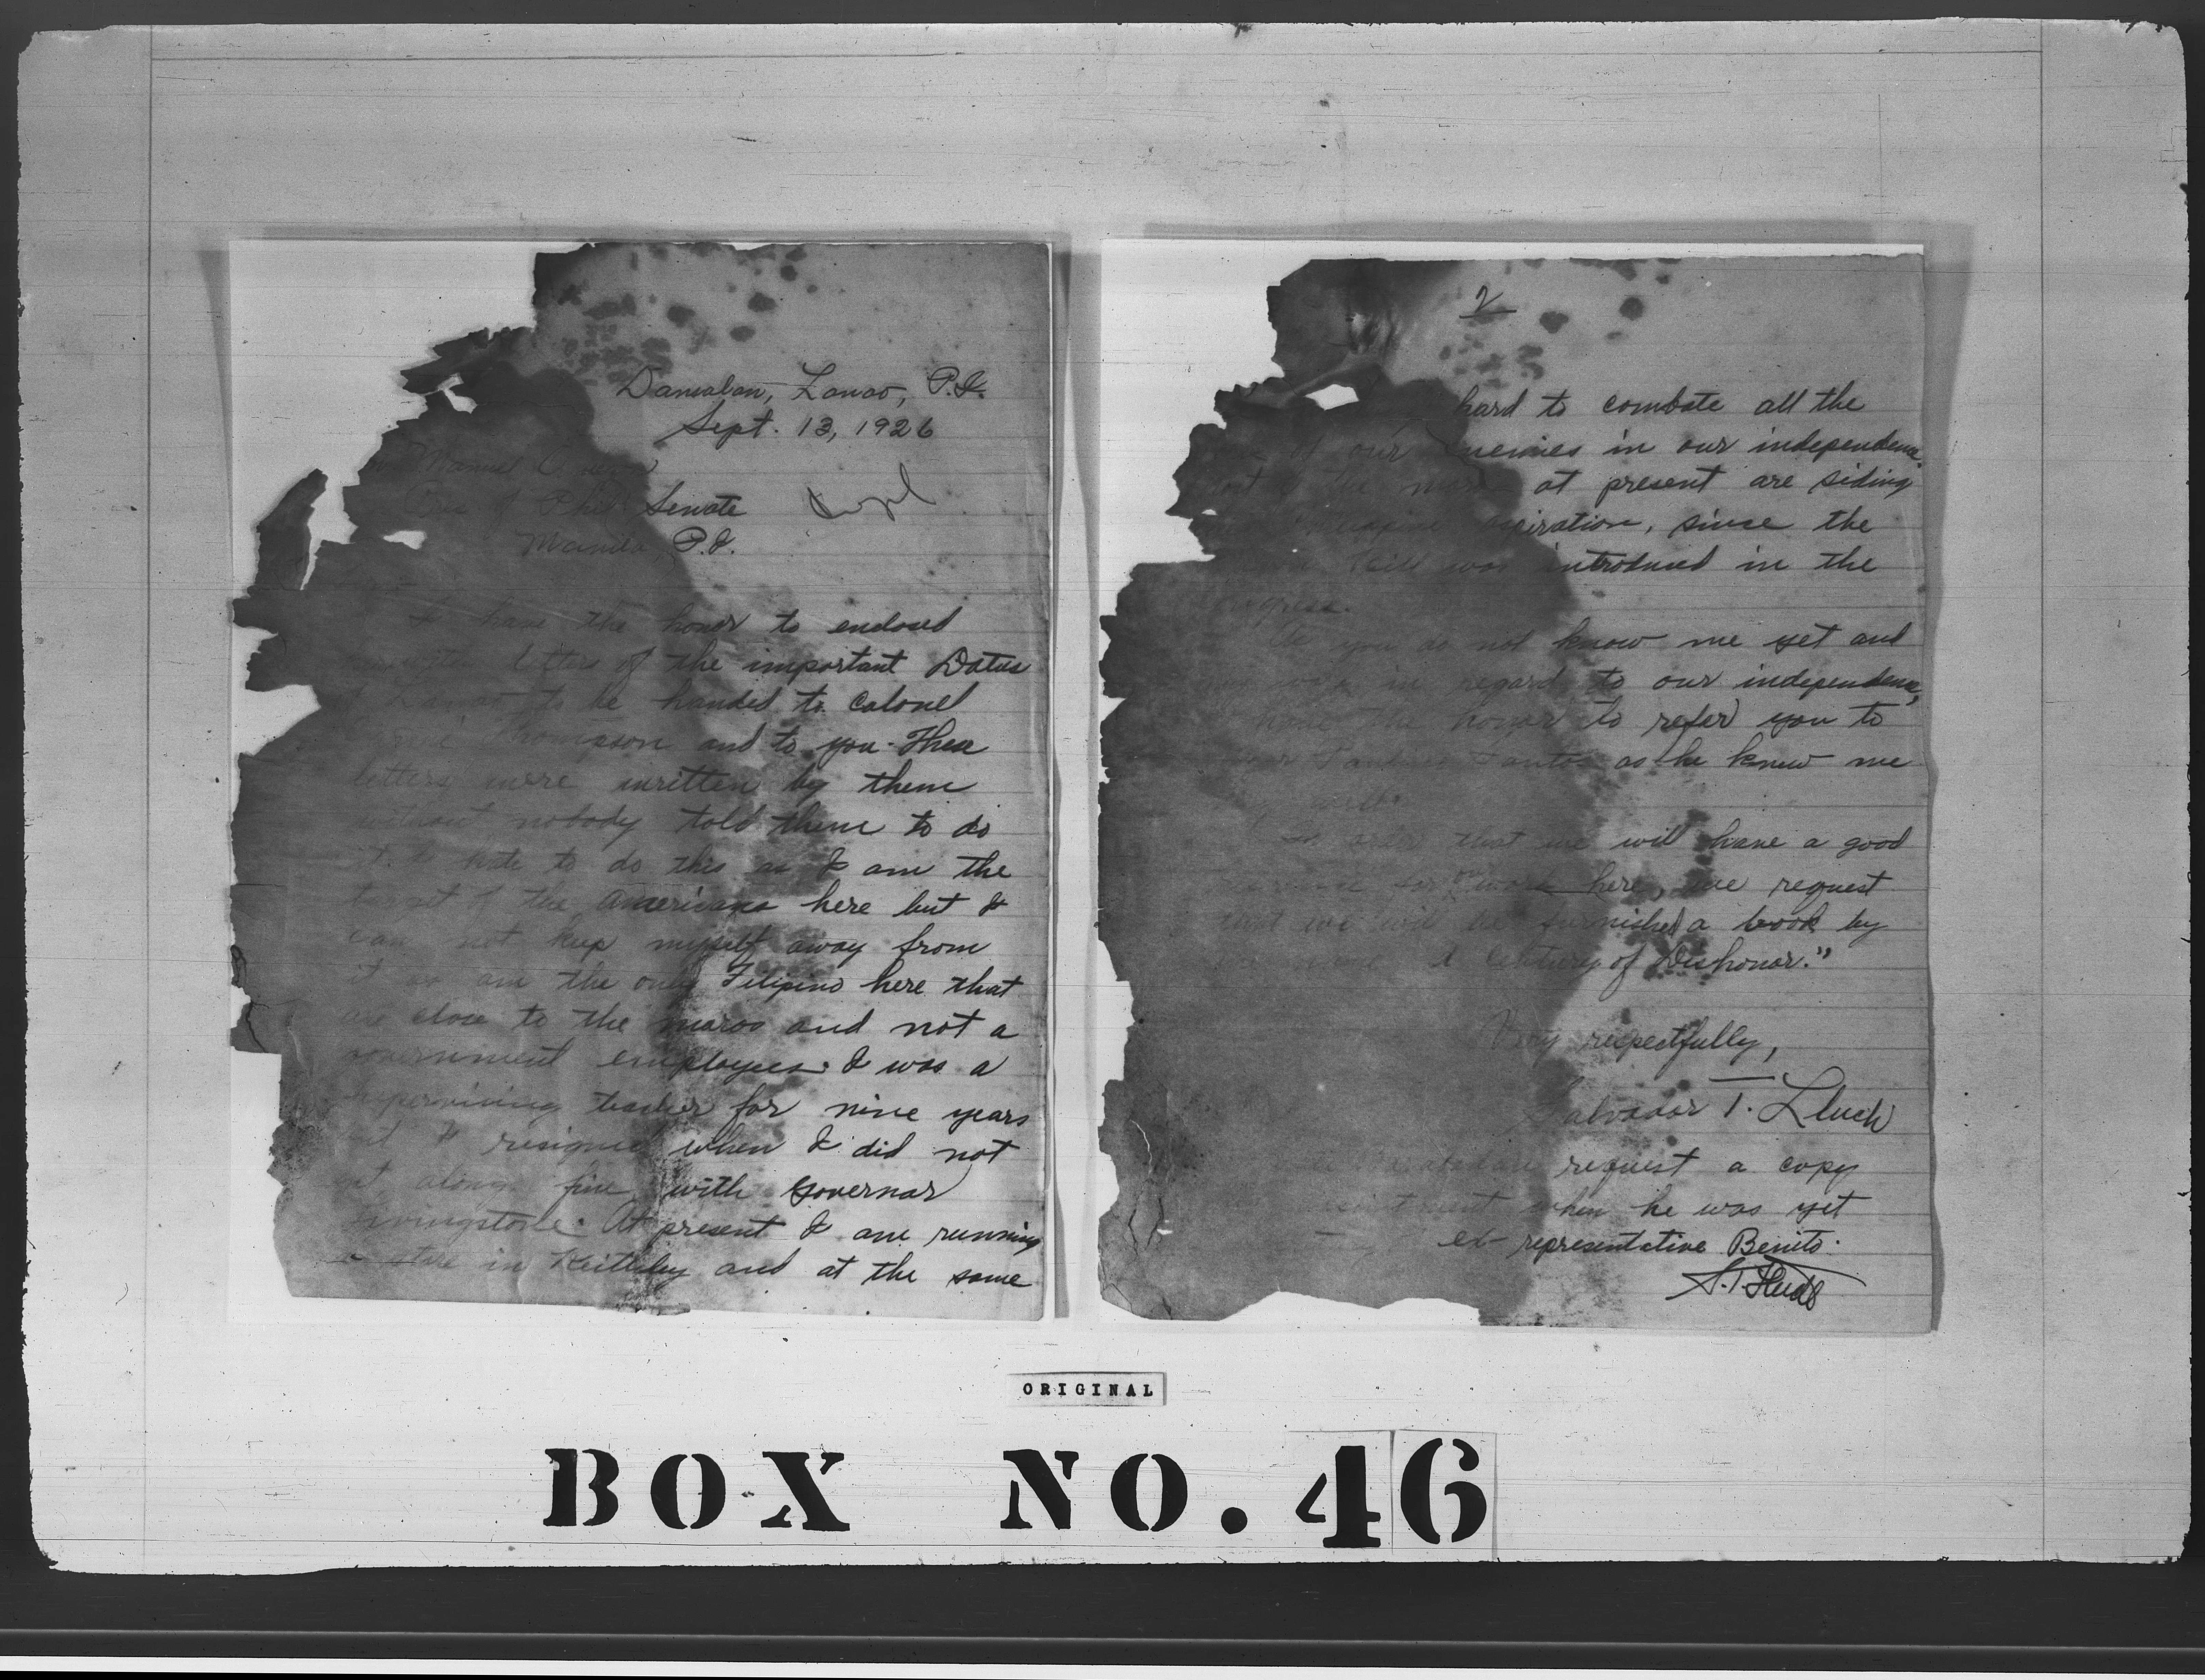 Damalan, Lanao, P.I.
Sept. 13, 1926
Manuel
of Phil Senate
Manila, P.I.
I have the honor to enclosed
letters of the important Datus
to be handed to Colonel
Thompson and to you. These
letters were written by them
without nobody told them to do
it. I hate to do this as I am the
target of the Americans here but I
can not keep myself away from
it as am the only Filipino here that
are close to the moros and not a
government employees. I was a
supervising teacher for nine years
but I resigned when I did not
get along fine with Governor
Livingstone. At present I am running
a store in Keithley and at the same
2
hard to combate all the
of our enemies in our independence
of the moros at present are siding
aspiration, since the
Bill was introduced in the
Congress.
As you do not know me yet and
my work in regard to our independence,
I have the honor to refer you to
Paulino Santos as he knew me
very well.
In order that we will have a good
for work here, we request
that we will be furnished a book by
A Century of Dishonor."
Very respectfully,
Salvador T. Lluch
request a copy
when he was yet
representative Benito.
S.T. Lluch
ORIGINAL
BOX NO. 46